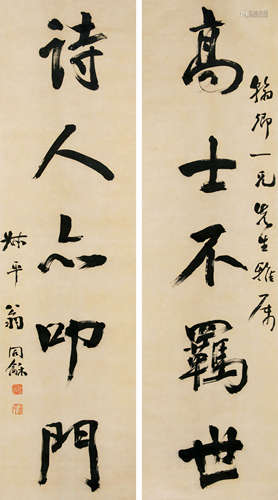 翰卿一兄先生雅属
高士不羈世
詩人亦叩門
叔平翁同龢